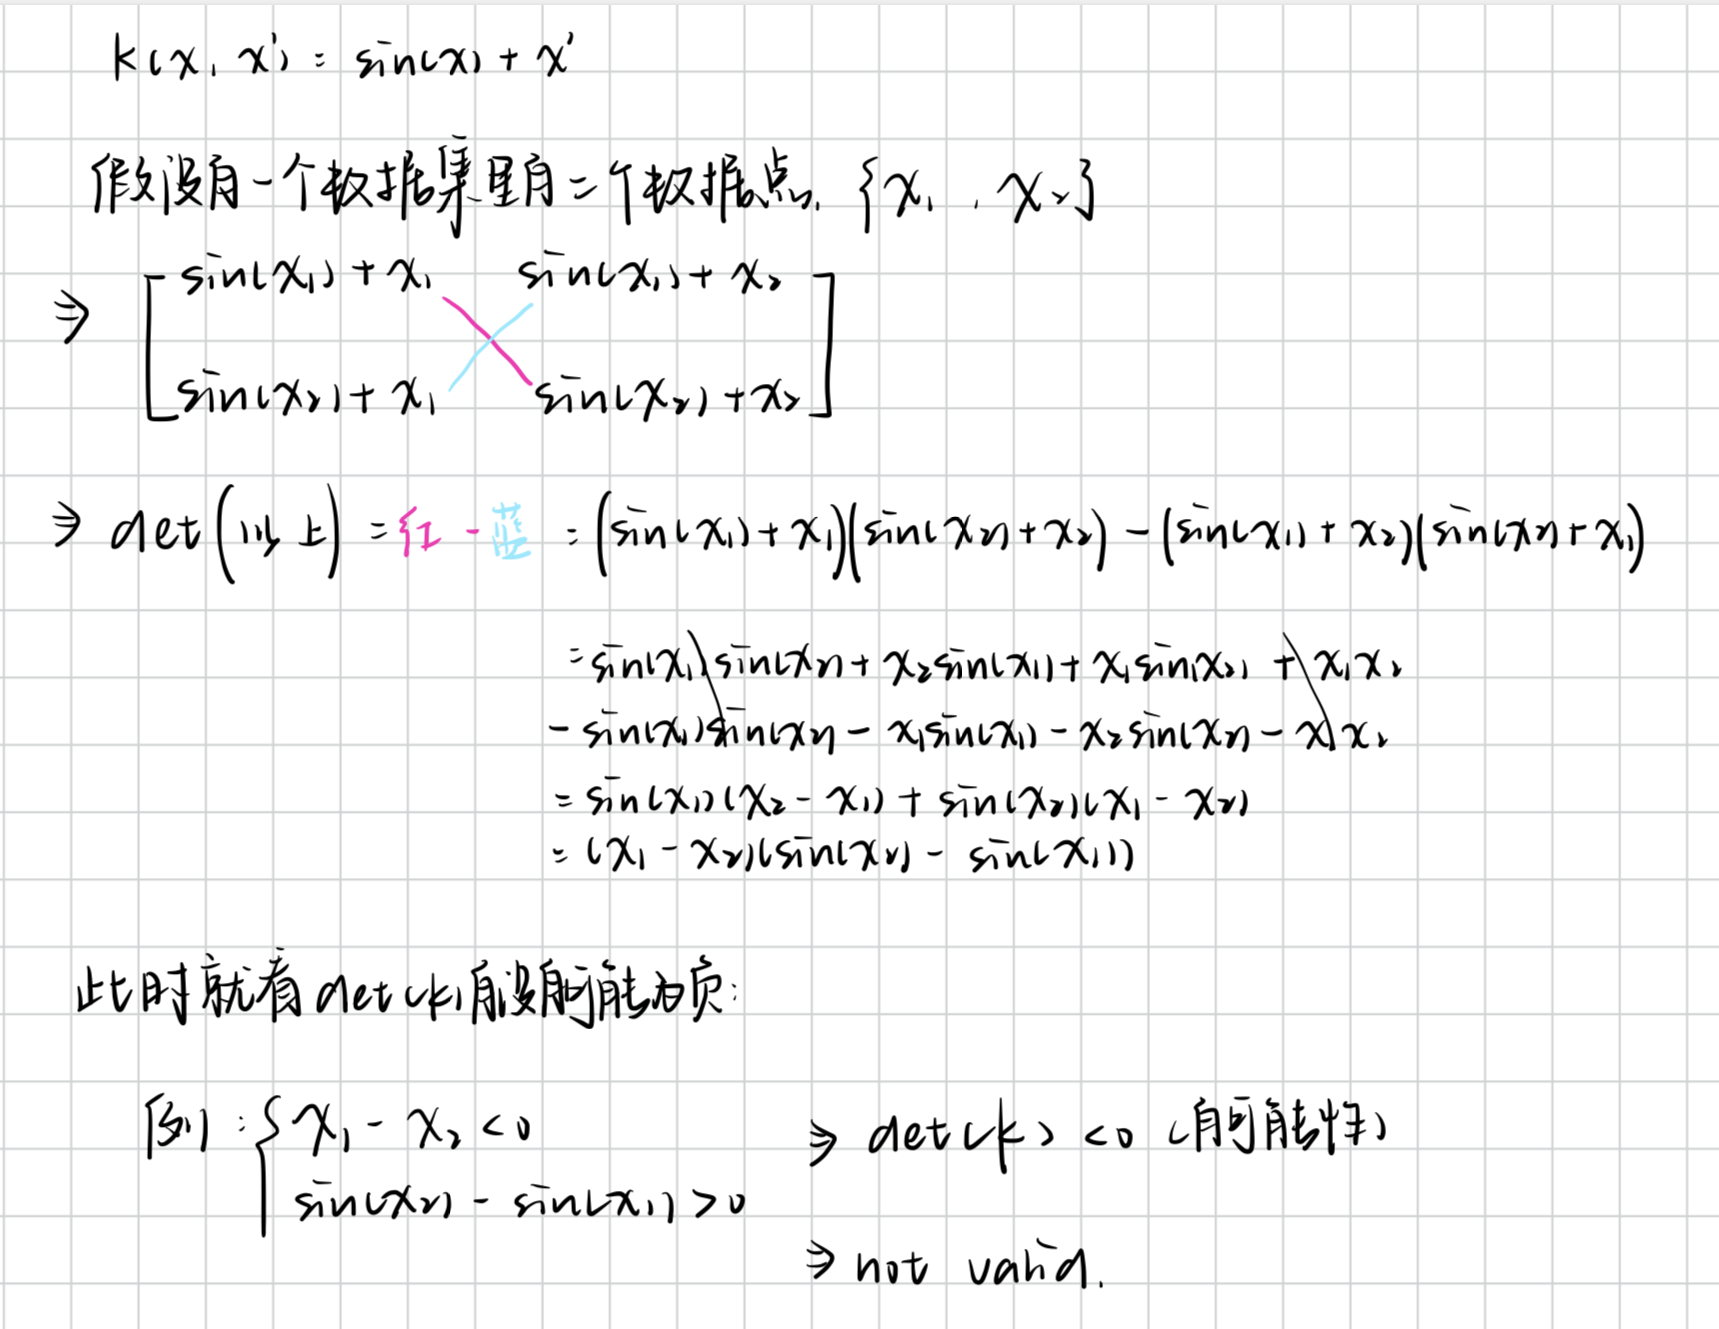 k(x, x') = sin(x) + x'
假设有一个数据集里有二个数据点, {x₁, x₂}
⇒ [ sin(x₁) + x₁ sin(x₁) + x₂
sin(x₂) + x₁ sin(x₂) + x₂ ]
⇒ det(以上) = 红 - 蓝 = (sin(x₁) + x₁)(sin(x₂) + x₂) - (sin(x₁) + x₂)(sin(x₂) + x₁)
= sin(x₁)sin(x₂) + x₂sin(x₁) + x₁sin(x₂) + x₁x₂
- sin(x₁)sin(x₂) - x₁sin(x₁) - x₂sin(x₂) - x₁x₂
= sin(x₁)(x₂ - x₁) + sin(x₂)(x₁ - x₂)
= (x₁ - x₂)(sin(x₂) - sin(x₁))
此时就看det(k)有没有可能为负:
例: { x₁ - x₂ < 0 ⇒ det(k) < 0 (有可能性)
sin(x₂) - sin(x₁) > 0
⇒ not valid.